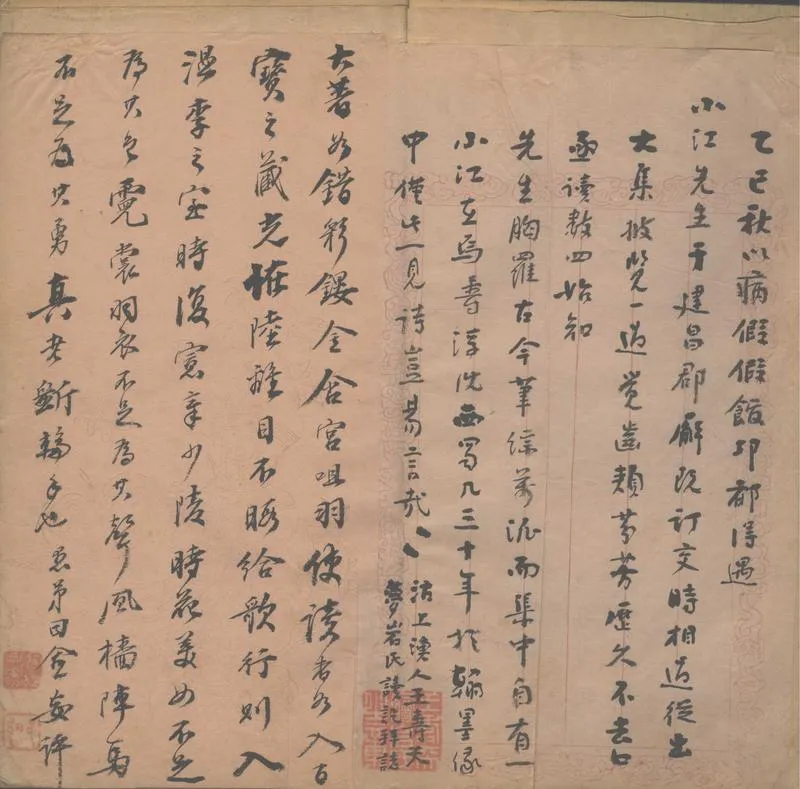 乙巳秋以病假假館邛都得遇
小江先生于建昌郡廨既訂交時相過從出
大集披覽一過覺齒頰芬芳歷久不去口
亟读数四始知
先生胸羅古今筆綜萬派而集中自有一
小江在焉壽浮沈西蜀凡三十年於翰墨緣
中僅此一見詩豈易言哉
沽上漁人王壽天
夢岩氏讀訖拜誌
大著如錯彩鏤金含宮咀羽使讀者如入百
寶之藏光怪陸離目不暇給歌行則入
溫李之室時復憲章少陵時花美女不足
為其色霓裳羽衣不足為其聲風檣陣馬
不足為其勇真老斲輪手也愚弟田評